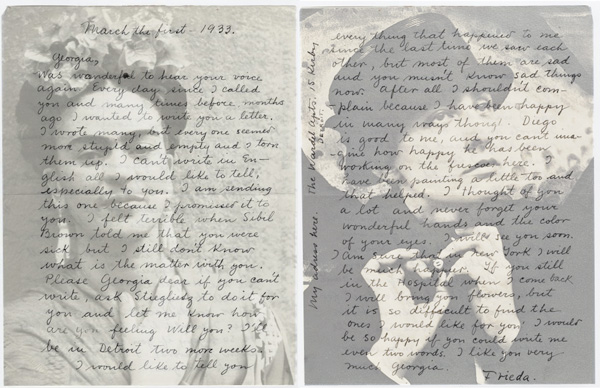 March the first - 1933.
Georgia,
Was wonderful to hear your voice
again. Every day since I called
you and many times before months
ago I wanted to write you a letter.
I wrote many, but every one seemed
more stupid and empty and I torn
them up. I can't write in En-
glish all I would like to tell,
especially to you. I am sending
this one because I promised it to
you. I felt terrible when Sibil
Brown told me that you were
sick but I still don't know
what is the matter with you.
Please Georgia dear if you can't
write, ask Stieglitz to do it for
you and let me know how
are you feeling will you? I'll
be in Detroit two more weeks.
I would like to tell you
every thing that happened to me
since the last time we saw each
other, but most of them are sad
and you mustn't know sad things
now. After all I shouldn't com-
plain because I have been happy
in many ways though. Diego
is good to me, and you can't ima-
gine how happy he has been
working on the frescoes here. I
have been painting a little too and
that helped. I thought of you
a lot and never forget your
wonderful hands and the color
of your eyes. I will see you soon.
I am sure that in New York I will
be much happier. If you still
in the Hospital when I come back
I will bring you flowers, but
it is so difficult to find the
ones I would like for you. I would
be so happy if you could write me
even two words. I like you very
much Georgia.
Frieda.
My adress here. The Wardell Apts. 15 Kirby
Detroit